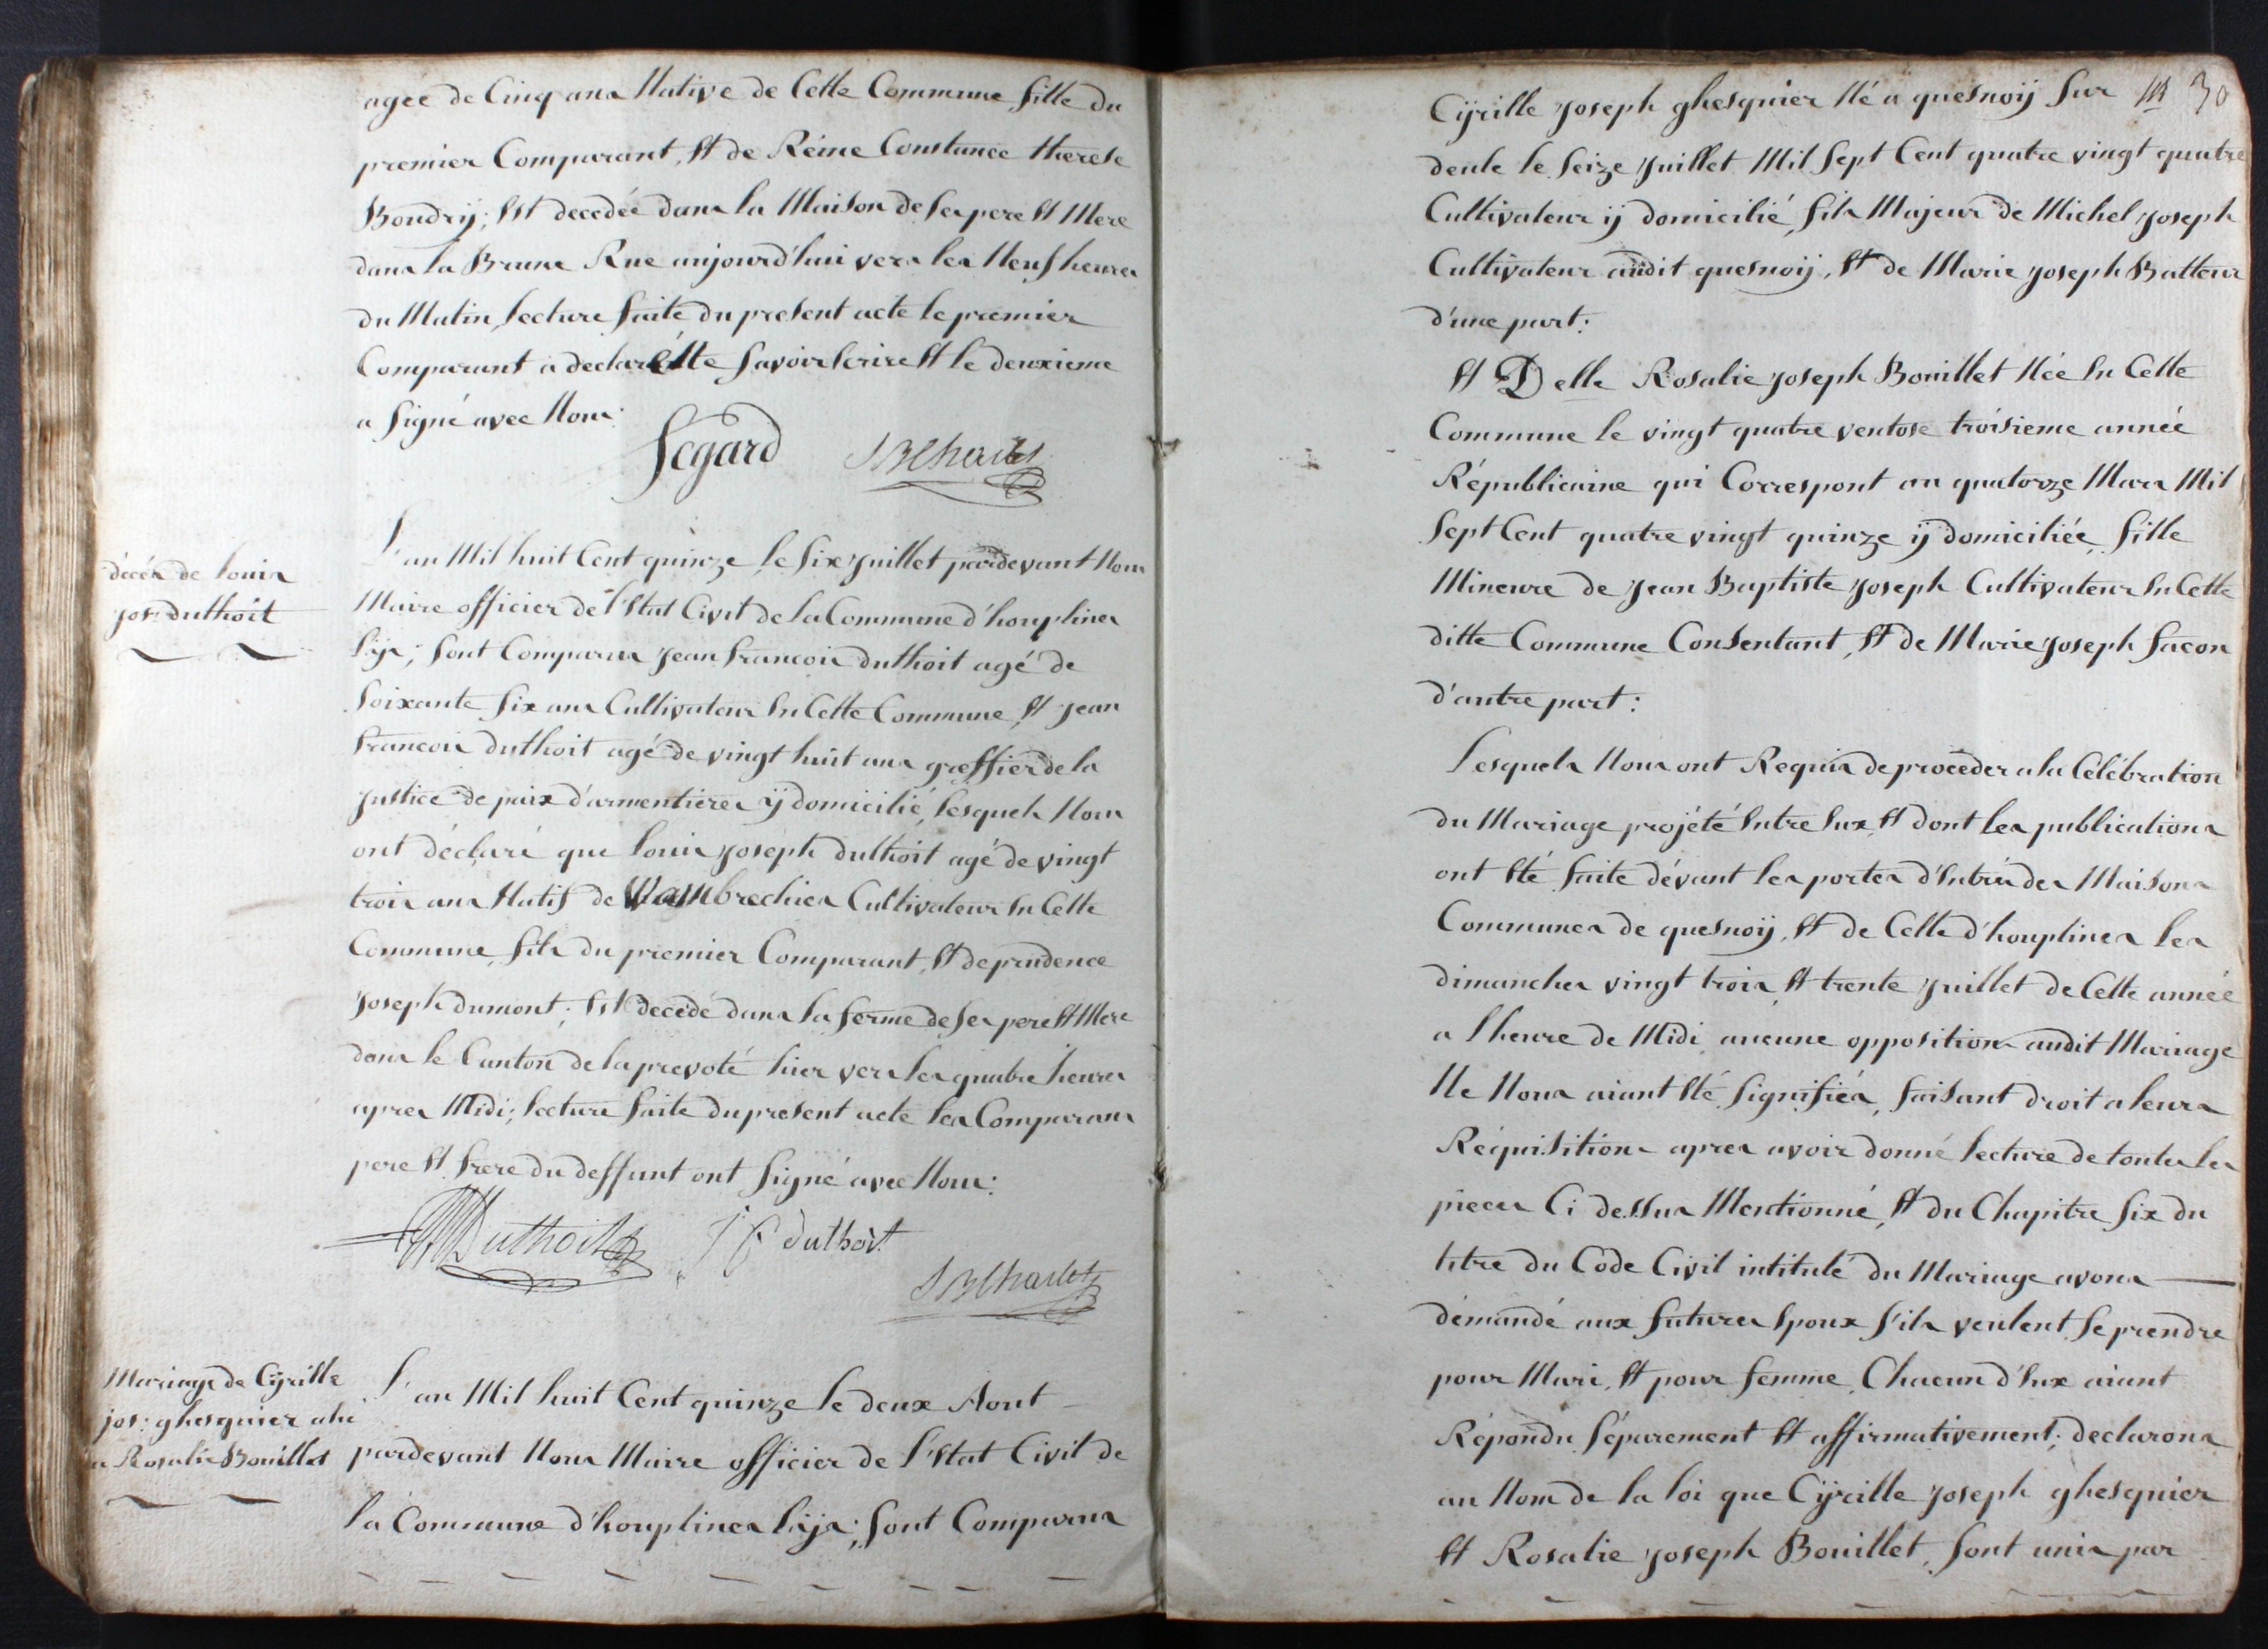 agee de Cinq ans Native de Cette Commune fille du
premier Comparant, Et de Réine Constance therese
Boudrÿ; Est decedée dans la Maison de ses pere Et Mere
dans la Brune Rue aujourd'hui vers les Neuf heures
du Matin, lecture faite du present acte le premier
Comparant a declaré Ne savoir Ecrire Et le deuxieme
a signé avec Nous:
Segard
décés de louis
jos: duthoit
L'an Mil huit Cent quinze le six juillet pardevant Nous
Maire officier de l'Etat Civil de la Commune d'houplines
Lÿs; sont Comparus jean francois duthoit agé de
soixante six ans Cultivateur En Cette Commune, Et jean
francois duthoit agé de vingt huit ans greffier de la
justice de paix d'armentieres ÿ domicilié, lesquels Nous
ont déclaré que louis joseph duthoit agé de vingt
trois ans Natif de Wambrechies Cultivateur En Cette
Commune, fils du premier Comparant, Et de prudence
joseph dumont; Est decedé dans la ferme de ses pere Et Mere
dans le Canton de la prevoté hier vers les quatre heures
apres Midi; lecture faite du present acte les Comparans
pere Et frere du deffunt ont signé avec Nous:
Duthoit J f duthoit
Mariage de Cÿrille
jos: ghesquier
a Rosalie Bouillet
L'an Mil huit Cent quinze le deux Aout
pardevant Nous Maire officier de l'Etat Civil de
la Commune d'houplines Lÿs; sont Comparus
30
Cÿrille joseph ghesquier Né a quesnoÿ sur
deule le seize juillet Mil sept Cent quatre vingt quatre
Cultivateur ÿ domicilié, fils Majeur de Michel joseph
Cultivateur audit quesnoÿ, Et de Marie joseph Batteur
d'une part:
Et Delle Rosalie joseph Bouillet Née En Cette
Commune le vingt quatre ventose troisieme année
Républicaine qui Correspont au quatorze Mars Mil
sept Cent quatre vingt quinze ÿ domiciliée, fille
Mineure de jean Baptiste joseph Cultivateur En Cette
ditte Commune Consentant, Et de Marie joseph facon
d'autre part:
Lesquels Nous ont Requis de proceder a la Célébration
du Mariage projété Entre Eux, Et dont les publications
ont Eté faite dévant les portes d'Entrée des Maisons
Communes de quesnoÿ, Et de Celle d'houplines les
dimanches vingt trois, Et trente juillet de Cette année
a l'heure de Midi, aucune opposition audit Mariage
Ne Nous aiant Eté signifiés, faisant droit a leurs
Réquisitions apres avoir donné lecture de toutes les
pieces Ci dessus Mentionné, Et du Chapitre six du
titre du Code Civil intitulé du Mariage avons
démandé aux futures Epoux s'ils veulent se prendre
pour Mari, Et pour femme, Chacun d'Eux aiant
Répondu séparement Et affirmativement; declarons
au Nom de la loi que Cÿrille joseph ghesquier
Et Rosalie joseph Bouillet, sont unis par